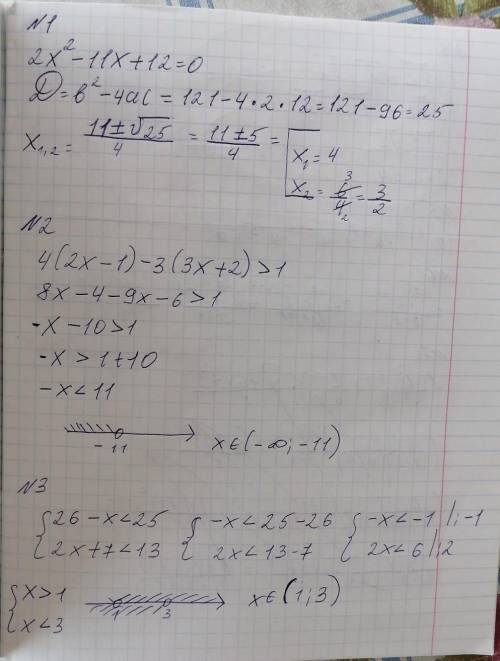 №1
2x² - 11x + 12 = 0
D = b² - 4ac = 121 - 4 · 2 · 12 = 121 - 96 = 25
x₁,₂ = (11 ± √25)/4 = (11 ± 5)/4 = [ x₁ = 4
x₂ = 6/4 = 3/2
№2
4(2x - 1) - 3(3x + 2) > 1
8x - 4 - 9x - 6 > 1
-x - 10 > 1
-x > 1 + 10
-x < 11
-11 x ∈ (-∞; -11)
№3
{ 26 - x < 25 { -x < 25 - 26 { -x < -1 |: -1
{ 2x + 7 < 13 { 2x < 13 - 7 { 2x < 6 |: 2
{ x > 1
{ x < 3 1 3 x ∈ (1; 3)